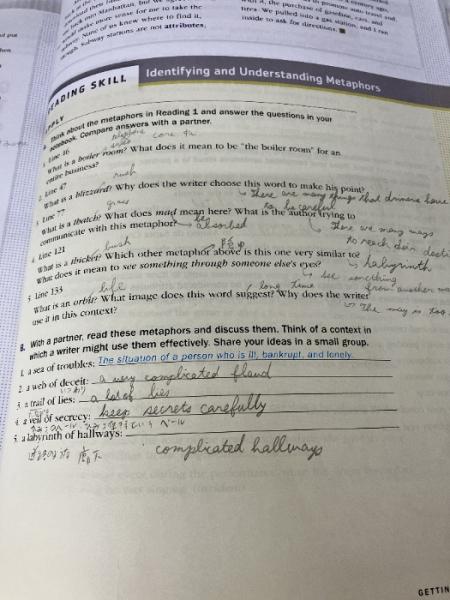 took into Manhattan, but we
make more sense for me to take the
of us knew where to find it,
Subway stations are not attributes,
the purchase of gasoline, cars, and
tires. We pulled into a gas station, and I ran
inside to ask for directions. ■
READING SKILL
Identifying and Understanding Metaphors
APPLY
think about the metaphors in Reading 1 and answer the questions in your
notebook. Compare answers with a partner.
1. Line 16
What is a boiler room? What does it mean to be "the boiler room" for an
entire business?
rush
2. Line 47
What is a blizzard? Why does the writer choose this word to make his point?
There are many things that drivers have
to be careful
3. Line 77
What is a thatch? What does mad mean here? What is the author trying to
communicate with this metaphor?
absorbed
there are many ways
to reach
4. Line 121
bush
What is a thicket? Which other metaphor above is this one very similar to?
What does it mean to see something through someone else's eyes?
labyrinth
see something
from another
5. Line 133
life
long time
What is an orbit? What image does this word suggest? Why does the writer
use it in this context?
The way is too
B. With a partner, read these metaphors and discuss them. Think of a context in
which a writer might use them effectively. Share your ideas in a small group.
1. a sea of troubles: The situation of a person who is ill, bankrupt, and lonely.
2. a web of deceit: a very complicated flaud
3. a trail of lies: a lot of lies
4. a veil of secrecy: keep secrets carefully
5. a labyrinth of hallways:
complicated hallways
GETTIN